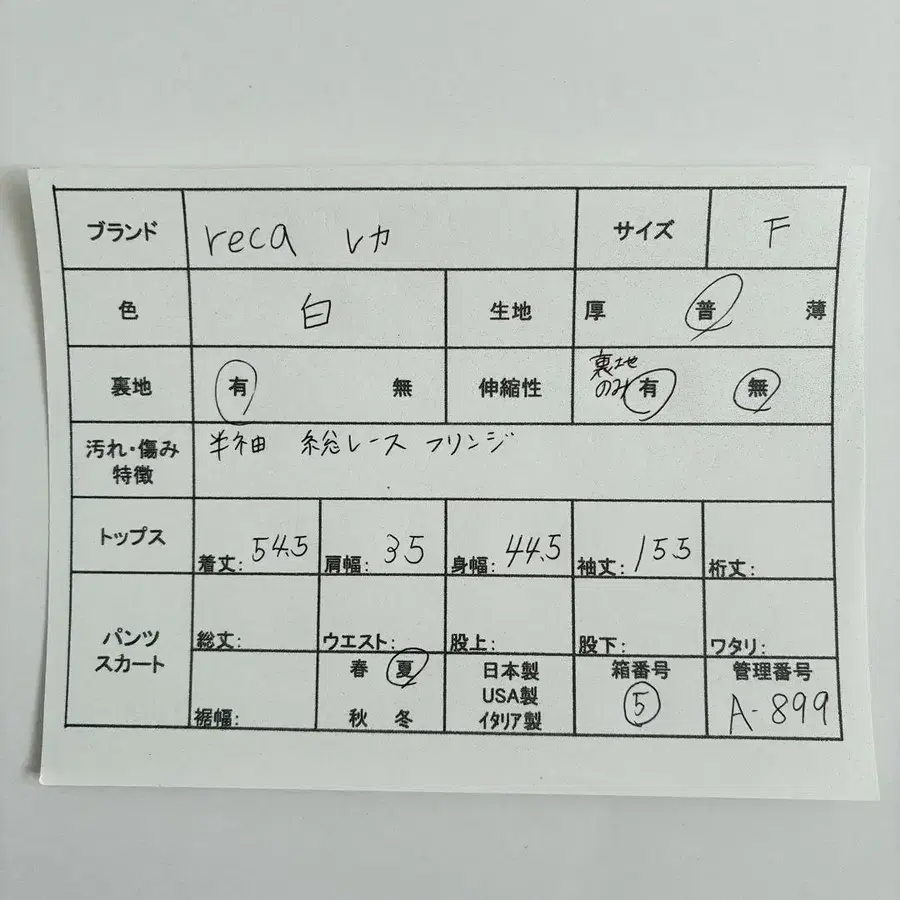 ブランド reca レカ サイズ F
色 白 生地 厚 普 薄
裏地 有 無 伸縮性 裏地のみ 有 無
汚れ・傷み 特徴 半袖 総レース フリンジ
トップス 着丈: 54.5 肩幅: 35 身幅: 44.5 袖丈: 15.5 桁丈:
パンツ スカート 総丈: ウエスト: 股上: 股下: ワタリ:
裾幅: 春 夏 秋 冬 日本製 USA製 イタリア製 箱番号 5 管理番号 A-899